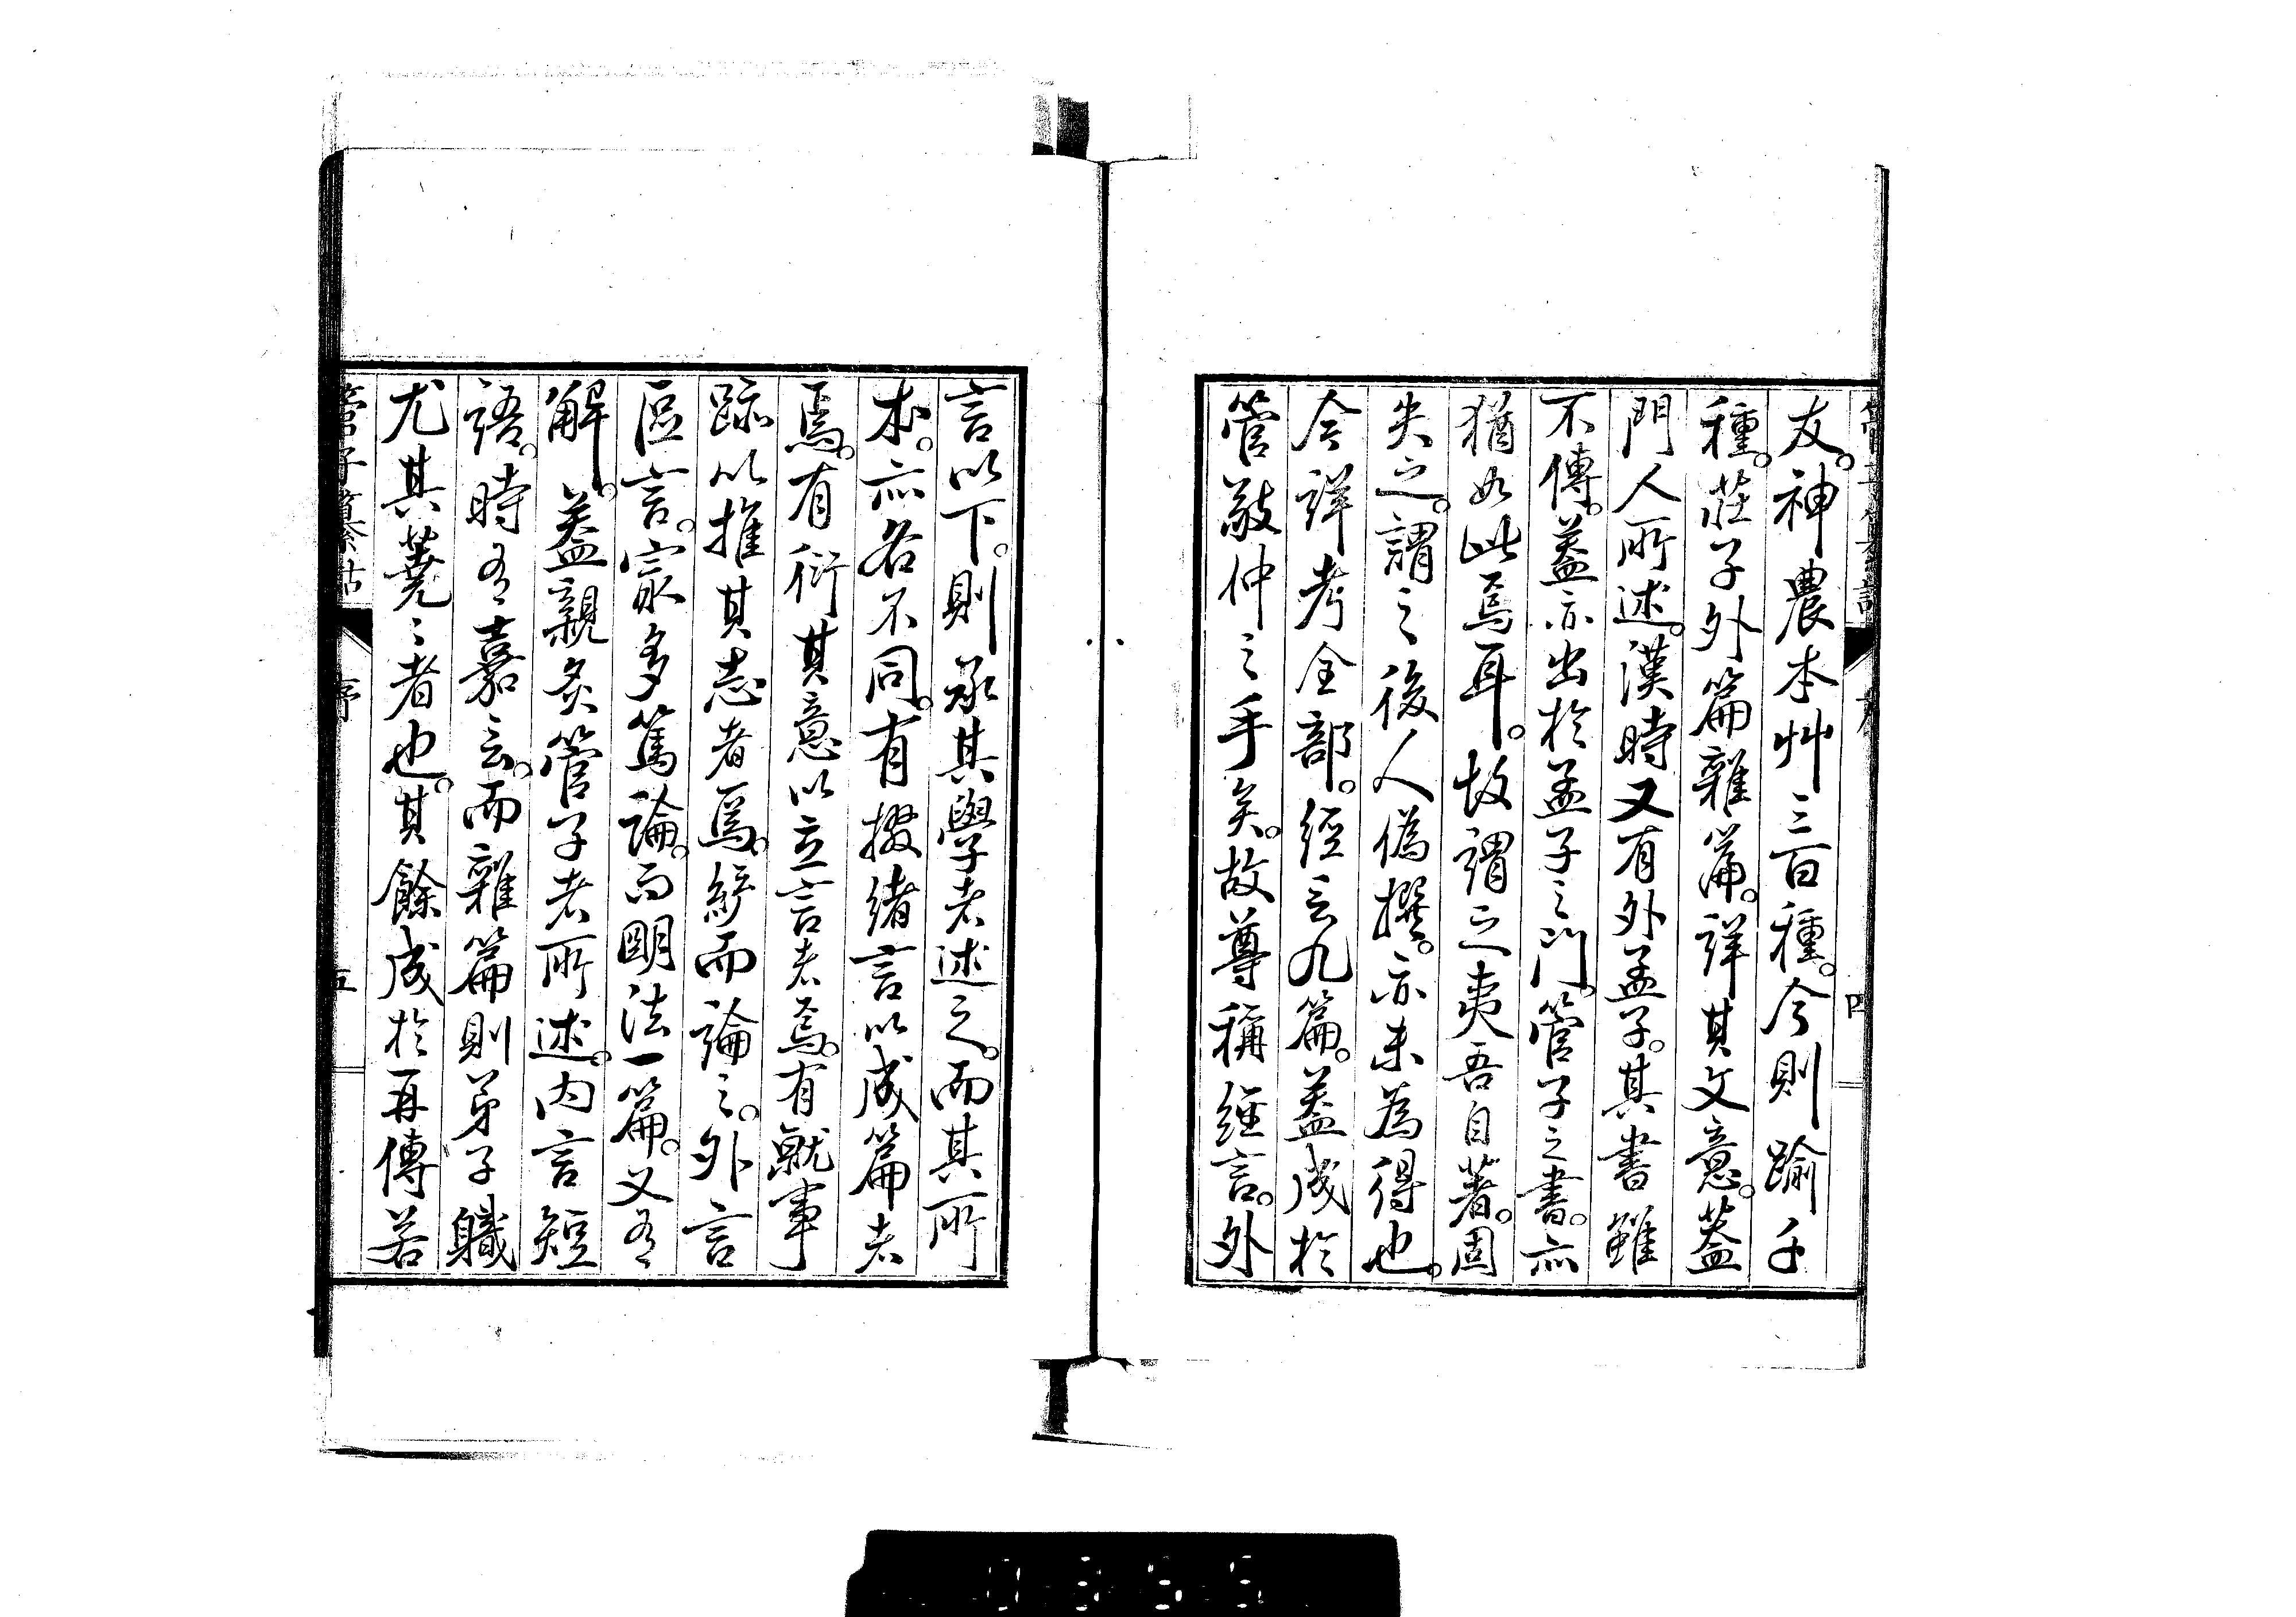 友。神農本艸三百種。今則踰千
種。莊子外篇雜篇。詳其文意。蓋
門人所述。漢時又有外孟子。其書雖
不傳。蓋亦出於孟子之門。管子之書。亦
猶如此焉耳。故謂之夷吾自著。固
失之。謂之後人偽撰。亦未為得也。
今詳考全部。經言九篇。蓋成於
管敬仲之手矣。故尊稱經言。外
言以下。則承其學者述之。而其所
本。亦各不同。有掇緒言以成篇者
焉。有衍其意以立言者焉。有就事
跡以推其志者焉。統而論之。外言
區言。家多篤論。而明法一篇。又有
解。蓋親炙管子者所述。內言短
語。時有嘉言。而雜篇則弟子職
尤其蕘〻者也。其餘成於再傳若
管子纂詁
序
五
四